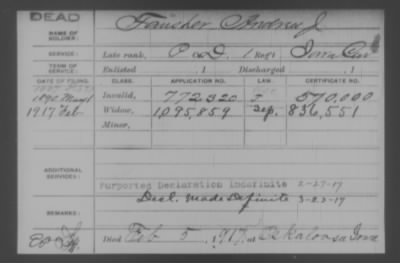 DEAD
NAME OF SOLDIER:
Faucher Andrew J.
SERVICE:
Late rank, Co D. 1 Reg't Iowa Cav
TERM OF SERVICE:
Enlisted , 1 Discharged , 1
DATE OF FILING. CLASS. APPLICATION NO. LAW. CERTIFICATE NO.
1890 May 1 Invalid, 772320 570,000
1917 Feb Widow, 1,095,859 Sep. 836,551
Minor,
ADDITIONAL SERVICES:
Purported Declaration indefinite 2-27-17
Decl. made Definite 3-23-17
REMARKS:
Died Feb 5, 1917, at Oskaloosa Iowa